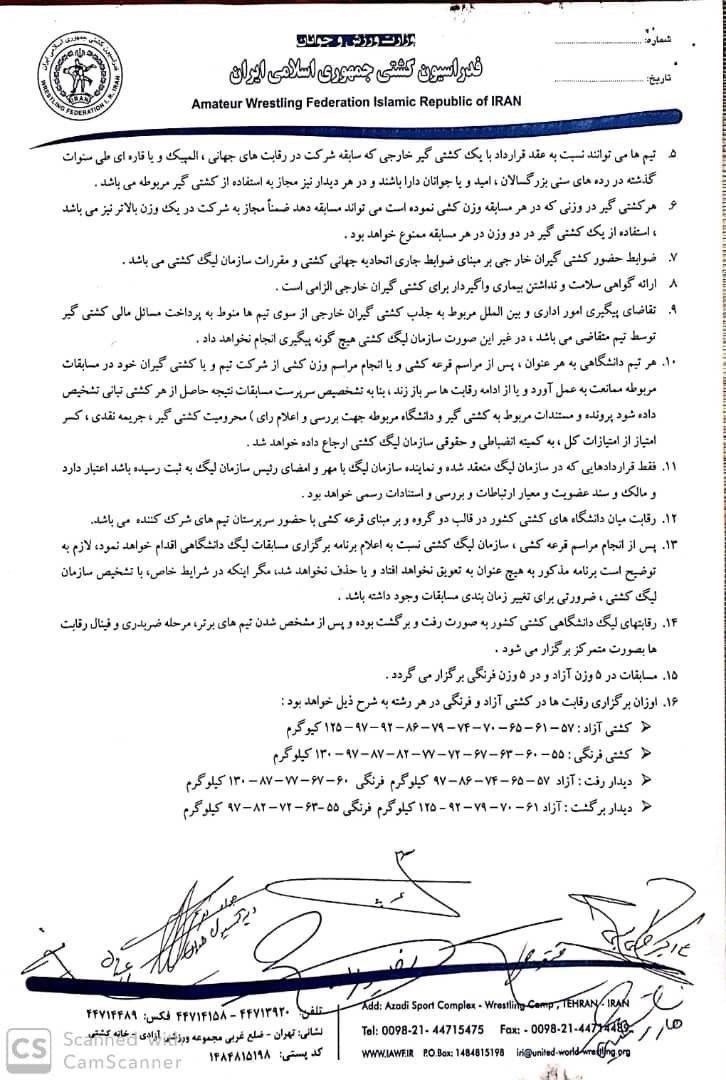 وزارت ورزش و جوانان
شماره:
فدراسیون کشتی جمهوری اسلامی ایران
تاریخ:
Amateur Wrestling Federation Islamic Republic of IRAN
فدراسیون کشتی جمهوری اسلامی ایران
IRAN
WRESTLING FEDERATION I. R. IRAN
۵. تیم ها می توانند نسبت به عقد قرارداد با یک کشتی گیر خارجی که سابقه شرکت در رقابت های جهانی ، المپیک و یا قاره ای طی سنوات
گذشته در رده های سنی بزرگسالان ، امید و یا جوانان دارا باشند و در هر دیدار نیز مجاز به استفاده از کشتی گیر مربوطه می باشد .
۶. هرکشتی گیر در وزنی که در هر مسابقه وزن کشی نموده است می تواند مسابقه دهد ضمناً مجاز به شرکت در یک وزن بالاتر نیز می باشد
، استفاده از یک کشتی گیر در دو وزن در هر مسابقه ممنوع خواهد بود .
۷. ضوابط حضور کشتی گیران خارجی بر مبنای ضوابط جاری اتحادیه جهانی کشتی و مقررات سازمان لیگ کشتی می باشد .
۸. ارائه گواهی سلامت و نداشتن بیماری واگیردار برای کشتی گیران خارجی الزامی است .
۹. تقاضای پیگیری امور اداری و بین الملل مربوط به جذب کشتی گیران خارجی از سوی تیم ها منوط به پرداخت مسائل مالی کشتی گیر
توسط تیم متقاضی می باشد ، در غیر این صورت سازمان لیگ کشتی هیچ گونه پیگیری انجام نخواهد داد .
۱۰. هر تیم دانشگاهی به هر عنوان ، پس از مراسم قرعه کشی و یا انجام مراسم وزن کشی از شرکت تیم و یا کشتی گیران خود در مسابقات
مربوطه ممانعت به عمل آورد و یا از ادامه رقابت ها سر باز زند ، بنا به تشخصیص سرپرست مسابقات نتیجه حاصل از هر کشتی تبانی تشخیص
داده شود پرونده و مستندات مربوط به کشتی گیر و دانشگاه مربوطه جهت بررسی و اعلام رای ) محرومیت کشتی گیر ، جریمه نقدی ، کسر
امتیاز از امتیازات کل ، به کمیته انضباطی و حقوقی سازمان لیگ کشتی ارجاع داده خواهد شد .
۱۱. فقط قراردادهایی که در سازمان لیگ منعقد شده و نماینده سازمان لیگ با مهر و امضای رئیس سازمان لیگ به ثبت رسیده باشد اعتبار دارد
و مالک و سند عضویت و معیار ارتباطات و بررسی و استنادات رسمی خواهد بود .
۱۲. رقابت میان دانشگاه های کشتی کشور در قالب دو گروه و بر مبنای قرعه کشی با حضور سرپرستان تیم های شرک کننده می باشد.
۱۳. پس از انجام مراسم قرعه کشی ، سازمان لیگ کشتی نسبت به اعلام برنامه برگزاری مسابقات لیگ دانشگاهی اقدام خواهد نمود، لازم به
توضیح است برنامه مذکور به هیچ عنوان به تعویق نخواهد افتاد و یا حذف نخواهد شد، مگر اینکه در شرایط خاص، با تشخیص سازمان
لیگ کشتی ، ضرورتی برای تغییر زمان بندی مسابقات وجود داشته باشد .
۱۴. رقابتهای لیگ دانشگاهی کشتی کشور به صورت رفت و برگشت بوده و پس از مشخص شدن تیم های برتر، مرحله ضربدری و فینال رقابت
ها بصورت متمرکز برگزار می شود .
۱۵. مسابقات در ۵ وزن آزاد و در ۵ وزن فرنگی برگزار می گردد .
۱۶. اوزان برگزاری رقابت ها در کشتی آزاد و فرنگی در هر رشته به شرح ذیل خواهد بود :
➢ کشتی آزاد : ۵۷-۶۱-۶۵-۷۰-۷۴-۷۹-۸۶-۹۲-۹۷-۱۲۵ کیوگرم
➢ کشتی فرنگی : ۵۵-۶۰-۶۳-۶۷-۷۲-۷۷-۸۲-۸۷-۹۷-۱۳۰ کیلوگرم
➢ دیدار رفت : آزاد ۵۷-۶۵-۷۴-۸۶-۹۷ کیلوگرم فرنگی ۶۰-۶۷-۷۷-۸۷-۱۳۰ کیلوگرم
➢ دیدار برگشت : آزاد ۶۱-۷۰-۷۹-۹۲-۱۲۵ کیلوگرم فرنگی ۵۵-۶۳-۷۲-۸۲-۹۷ کیلوگرم
تلفن: ۴۴۷۱۳۹۲۰ - ۴۴۷۱۴۱۵۸ فکس: ۴۴۷۱۴۴۸۹
نشانی: تهران - ضلع غربی مجموعه ورزشی آزادی - خانه کشتی
کد پستی: ۱۴۸۴۸۱۵۱۹۸
Add: Azadi Sport Complex - Wrestling Camp , TEHRAN - IRAN
Tel: 0098-21- 44715475 Fax: - 0098-21-44714489
WWW.IAWF.IR P.O.Box: 1484815198 iri@united-world-wrestling.org
CS Scanned with
CamScanner